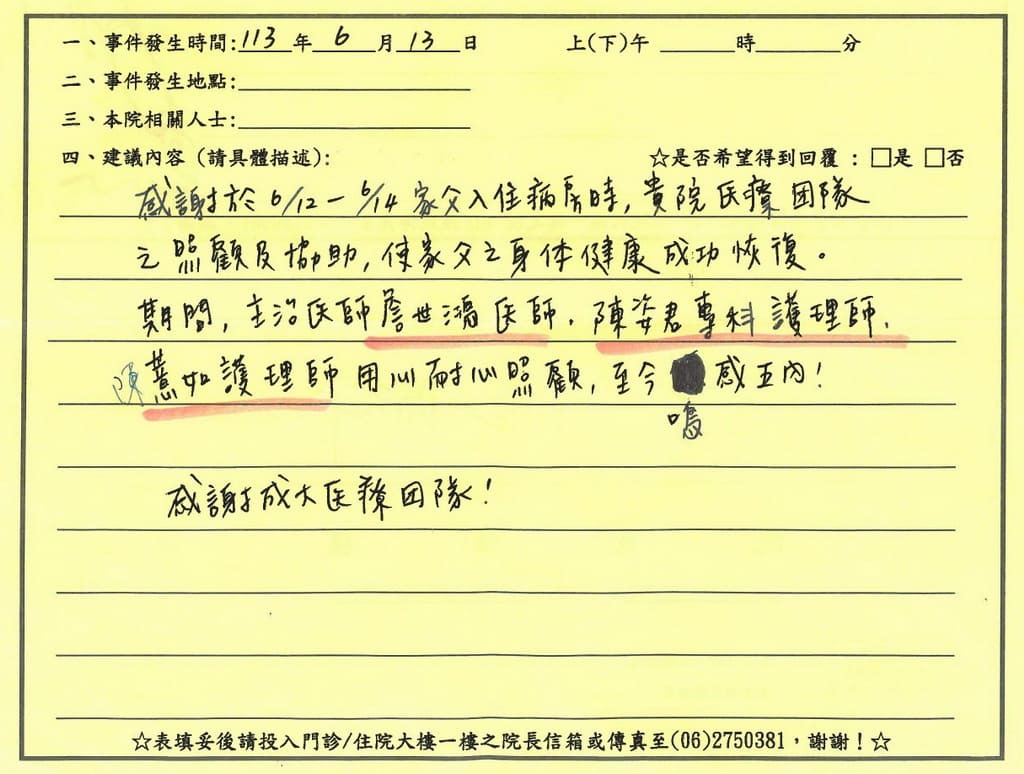 一、事件發生時間:113年6月13日 上(下)午 ______時______分
二、事件發生地點:
三、本院相關人士:
四、建議內容（請具體描述）: ☆是否希望得到回覆：□是 □否
感謝於6/12-6/14家父入住病房時,貴院医療团隊
之照顧及協助,使家父之身体健康成功恢復。
期間,主治医師詹世鴻医師.陳姿君專科護理師.
陳薏如護理師用心耐心照顧,至今 感五內!
銘
感謝成大医療団隊!
☆表填妥後請投入門診/住院大樓一樓之院長信箱或傳真至(06)2750381，謝謝！☆